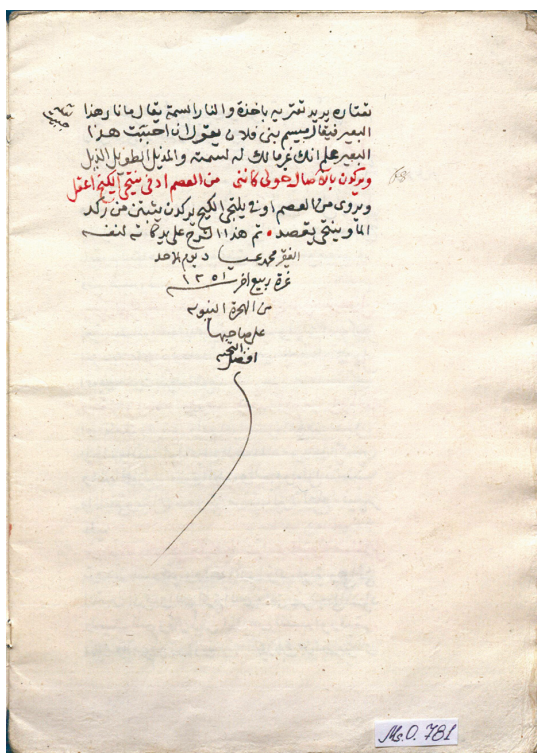 تعتاره يريد تعتريه باخذة والنار السمة يقال ما نار هذا
البعير فيقال ميسم بنى فلان يقول ان احببت هذا
البعير علم انك غرمالك له لسمته والمذيل الطويل الذيل
ويركدن بالآصال حولى كاننى من العصم ادفى ينتحى الكيح اعقل
ويروى من العصم اوفى يلتجى الكيح يركدن يثبتن من ركد
الماء وينتحى يقصد • تم هذا الشرح على يد كاتبه لنفسه
الفقير محمد عياد يوم الاحد
غرة ربيع اخر ١٢٥١
من الهجرة النبويه
على صاحبها
افضل التحيه
Ms. O. 781